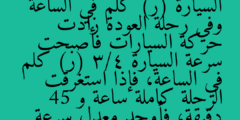 السيارة (ر) كلم في الساعة
وفي رحلة العودة زادت
حركة السيارات فأصبحت
سرعة السيارة ٣/٤ (ر) كلم
في الساعة، فإذا استغرقت
الرحلة كاملة ساعة و 45
دقيقة، فأوجد معدل سرعة